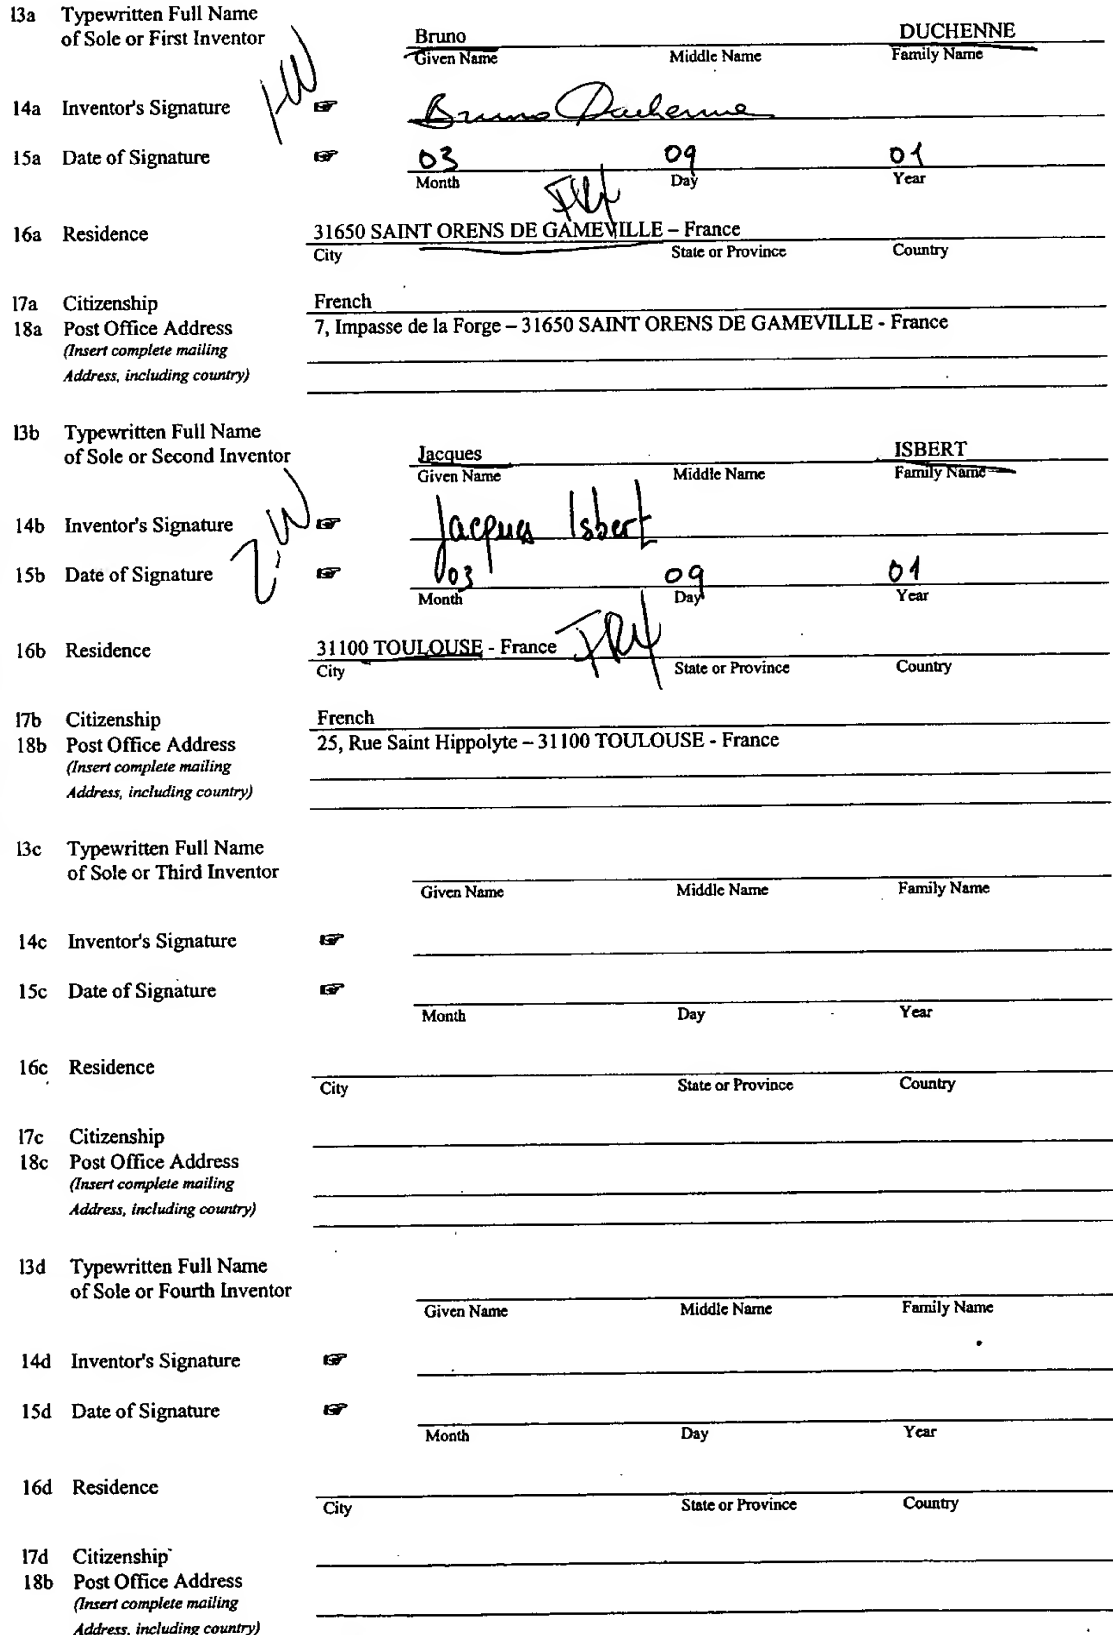 13a Typewritten Full Name
of Sole or First Inventor Bruno DUCHENNE
Given Name Middle Name Family Name
1-W
14a Inventor's Signature ☞ Bruno Duchenne
15a Date of Signature ☞ 03 09 01
Month Day Year
FRX
16a Residence 31650 SAINT ORENS DE GAMEVILLE – France
City State or Province Country
17a Citizenship French
18a Post Office Address 7, Impasse de la Forge – 31650 SAINT ORENS DE GAMEVILLE - France
(Insert complete mailing
Address, including country)
13b Typewritten Full Name
of Sole or Second Inventor Jacques ISBERT
Given Name Middle Name Family Name
2-W
14b Inventor's Signature ☞ Jacques Isbert
15b Date of Signature ☞ 03 09 01
Month Day Year
16b Residence 31100 TOULOUSE - France FRX
City State or Province Country
17b Citizenship French
18b Post Office Address 25, Rue Saint Hippolyte – 31100 TOULOUSE - France
(Insert complete mailing
Address, including country)
13c Typewritten Full Name
of Sole or Third Inventor
Given Name Middle Name Family Name
14c Inventor's Signature ☞
15c Date of Signature ☞
Month Day Year
16c Residence
City State or Province Country
17c Citizenship
18c Post Office Address
(Insert complete mailing
Address, including country)
13d Typewritten Full Name
of Sole or Fourth Inventor
Given Name Middle Name Family Name
14d Inventor's Signature ☞
15d Date of Signature ☞
Month Day Year
16d Residence
City State or Province Country
17d Citizenship
18b Post Office Address
(Insert complete mailing
Address, including country)